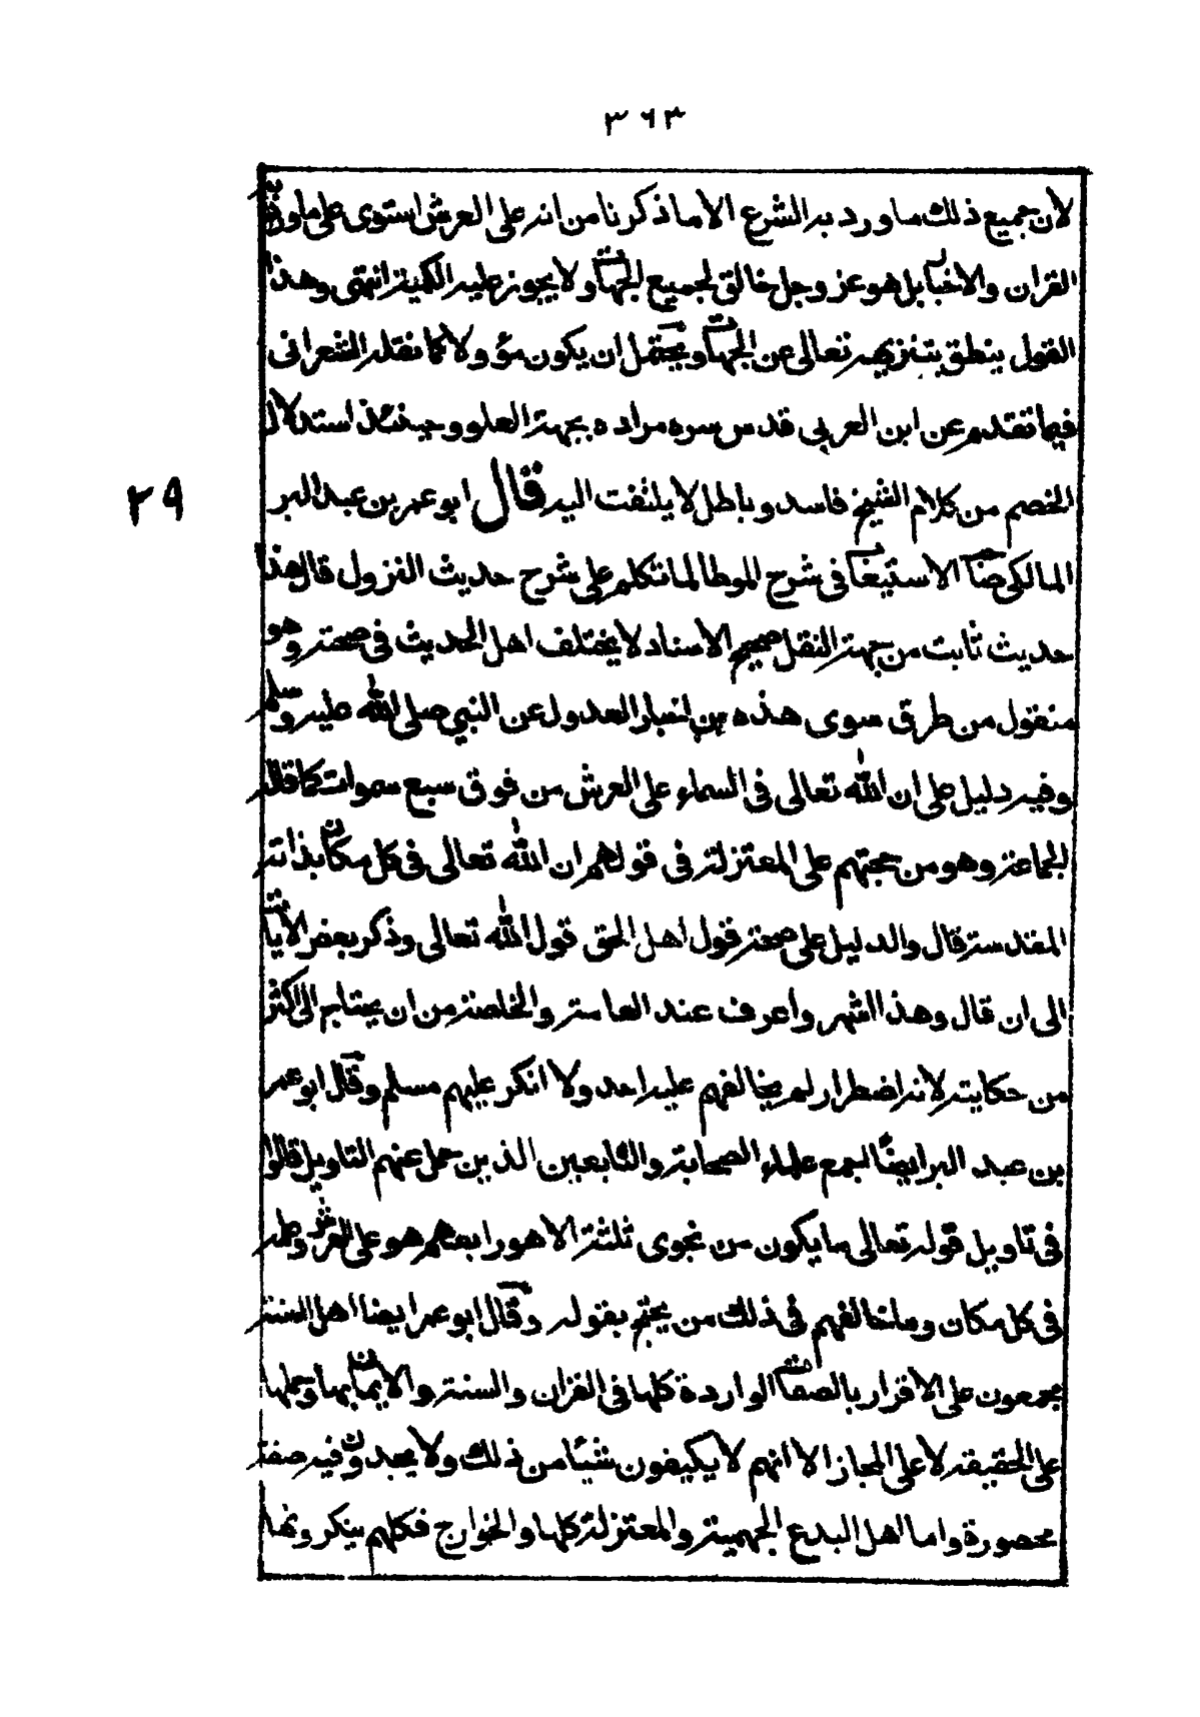 ٣٦٣
لان جميع ذلك ما ورد به الشرع الا ما ذكرنا من انه على العرش استوى على ما ورد به
القران والاخبار بل هو عز وجل خالق لجميع الجهات ولا يجوز عليه الكمية انتهى وهذا
القول ينطق بتنزيهه تعالى عن الجهات ويحتمل ان يكون مؤولا كما نقله الشعرانى
فيما تقدم عن ابن العربى قدس سره مراده بجهة العلو وحينئذ استدلال
الخصم من كلام الشيخ فاسد وباطل لا يلتفت اليه قال ابو عمر بن عبد البر
٢٩
المالكى صاحب الاستيعاب فى شرح الموطا لما تكلم على شرح حديث النزول قال هذا
حديث ثابت من جهة النقل صحيح الاسناد لا يختلف اهل الحديث فى صحته وهو
منقول من طرق سوى هذه من اخبار العدول عن النبي صلى الله عليه وسلم
وفيه دليل على ان الله تعالى فى السماء على العرش من فوق سبع سموات كما قال
الجماعة وهو من حجتهم على المعتزلة فى قولهم ان الله تعالى فى كل مكان بذاته
المقدسة قال والدليل على صحة قول اهل الحق قول الله تعالى وذكر بعض الآيات
الى ان قال وهذا اشهر واعرف عند العامة والخاصة من ان يحتاج الى اكثر
من حكايته لانه اضطرار لم يخالفهم عليه احد ولا انكر عليهم مسلم وقال ابو عمر
بن عبد البر ايضًا اجمع علماء الصحابة والتابعين الذين حمل عنهم التاويل قالوا
فى تاويل قوله تعالى ما يكون من نجوى ثلثة الا هو رابعهم هو على العرش وعلمه
فى كل مكان وما خالفهم فى ذلك من يحتج بقوله وقال ابو عمر ايضا اهل السنة
مجمعون على الاقرار بالصفات الواردة كلها فى القران والسنة والايمان بها وحملها
على الحقيقة لا على المجاز الا انهم لا يكيفون شيئا من ذلك ولا يحدون فيه صفة
محصورة واما اهل البدع الجهمية والمعتزلة كلها والخوارج فكلهم ينكرونها